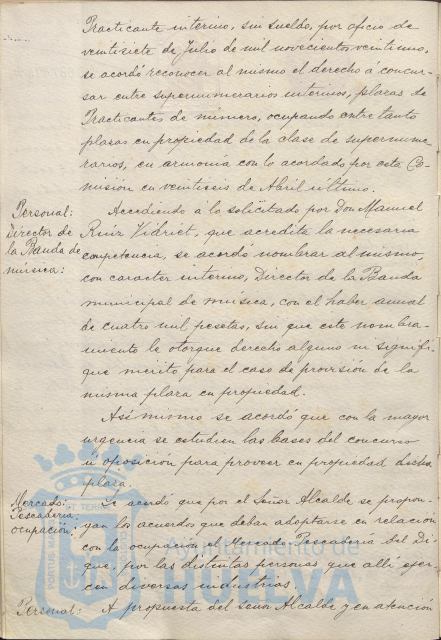 Practicante interino, sin sueldo, por oficio de
veintisiete de Julio de mil novecientos veintiuno,
se acordó reconocer al mismo el derecho á concur-
sar entre supernumerarios interinos, plazas de
Practicantes de número, ocupando entre tanto
plazas en propiedad de la clase de supernume-
rarios, en armonía con lo acordado por esta Co-
misión en veintiseis de Abril último.
Personal:
Director de
la Banda de
música:
Accediendo á lo solicitado por Don Manuel
Ruiz Vidriet, que acredita la necesaria
competencia, se acordó nombrar al mismo,
con caracter interino, Director de la Banda
municipal de música, con el haber anual
de cuatro mil pesetas, sin que este nombra-
miento le otorgue derecho alguno ni signifi-
que mérito para el caso de provisión de la
misma plaza en propiedad.
Asímismo se acordó que con la mayor
urgencia se estudien las bases del concurso
ú oposición para proveer en propiedad dicha
plaza.
Mercado:
Pescadería:
ocupación:
Se acordó que por el Señor Alcalde se propon-
gan los acuerdos que deban adoptarse en relación
con la ocupación el Mercado Pescadería del Di-
que, por las distintas personas que allí ejer-
cen diversas industrias.
Personal:
A propuesta del Señor Alcalde y en atención
Ayuntamiento de
HUELVA